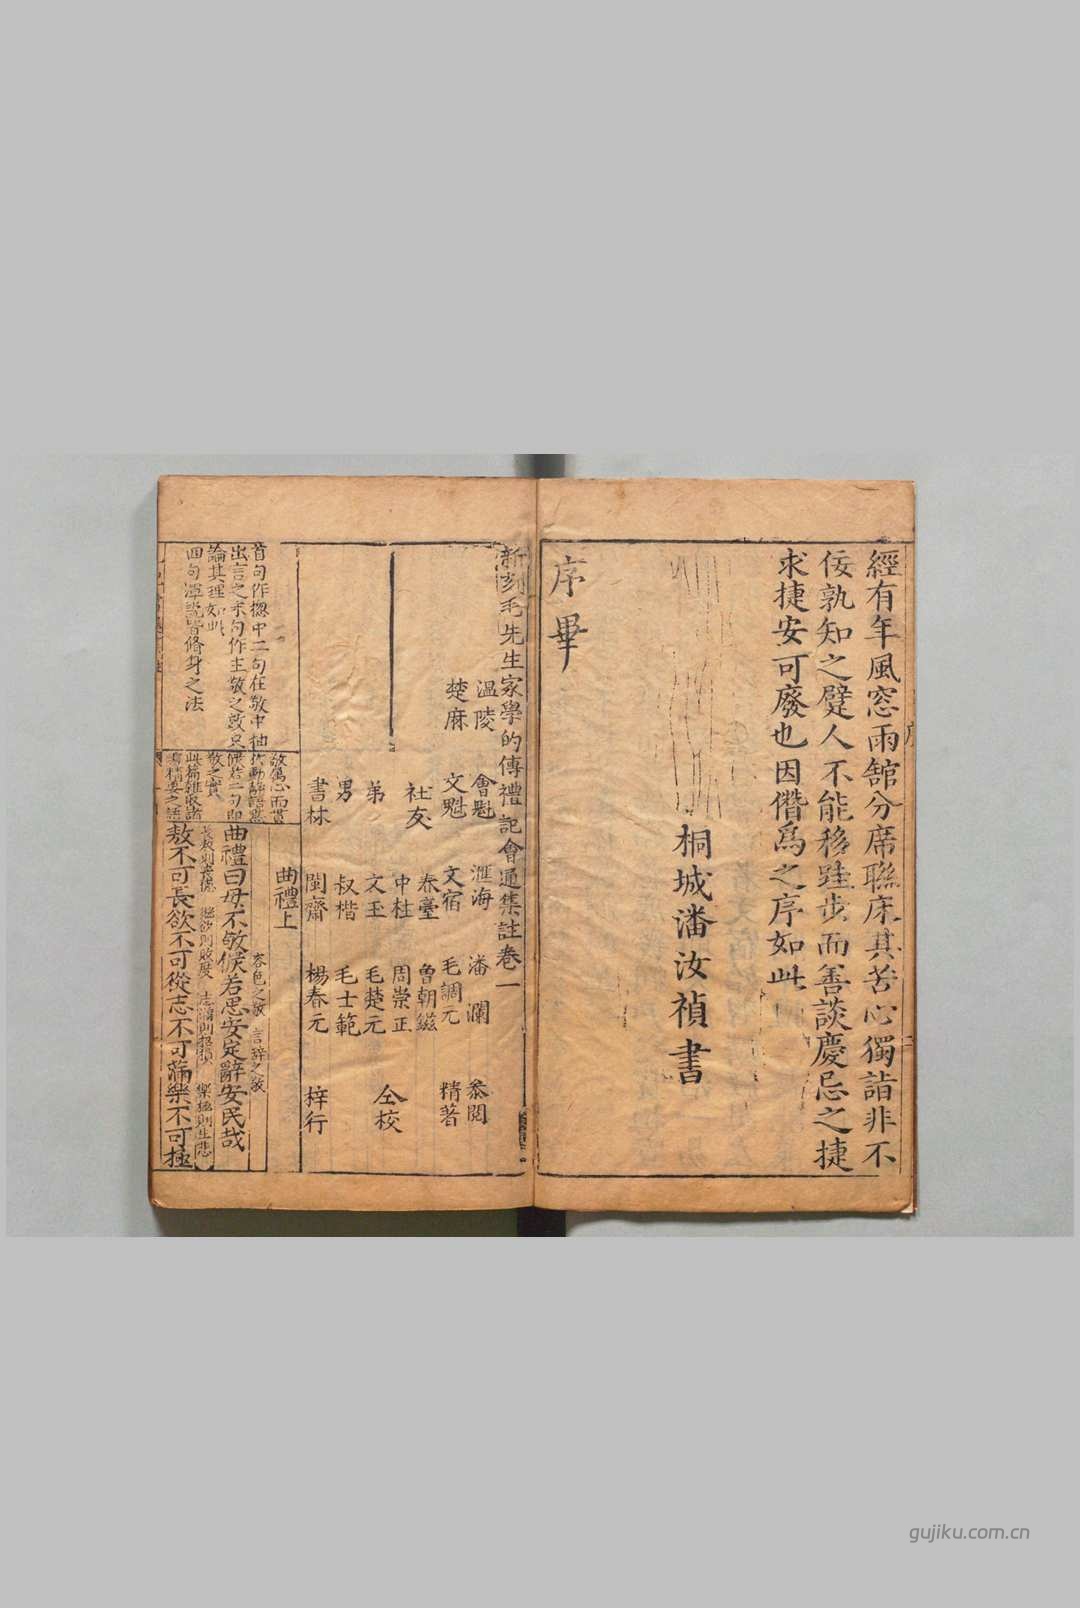 經有年風窓雨舘分席聯床其苦心獨詣非不
佞孰知之躄人不能移跬步而善談慶忌之捷
求捷安可廢也因僭爲之序如此
桐城潘汝禎書
序畢
新刻毛先生家學的傳禮記會通集註卷一
温陵 會魁 滙海 潘 瀾 叅閱
楚麻 文魁 文宿 毛調元 精著
社友 春臺 曾朝鎡
中柱 周崇正 仝校
弟 文玉 毛楚元
男 叔楷 毛士範
書林 閩齋 楊春元 梓行
曲禮上
首句作揔中二句在敬中抽
出言之末句作主敬之效只
論其理如此
四句渾説皆脩身之法
敬萬心而貫
儼若二句即
敬之實
此篇雜收諸
精要之語
容色之敬 言辭之敬
曲禮曰毋不敬儼若思安定辭安民哉
長敖則喪德 縱欲則敗度 志滿則招損 樂極則生悲
敖不可長欲不可從志不可滿樂不可極
gujiku.com.cn